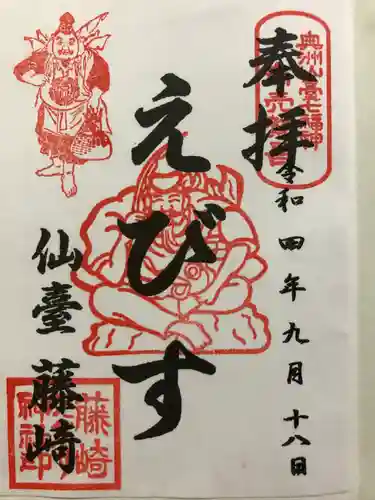 奉拝
奥州仙臺七福神
令和四年九月十八日
えびす
仙臺
藤崎
藤崎